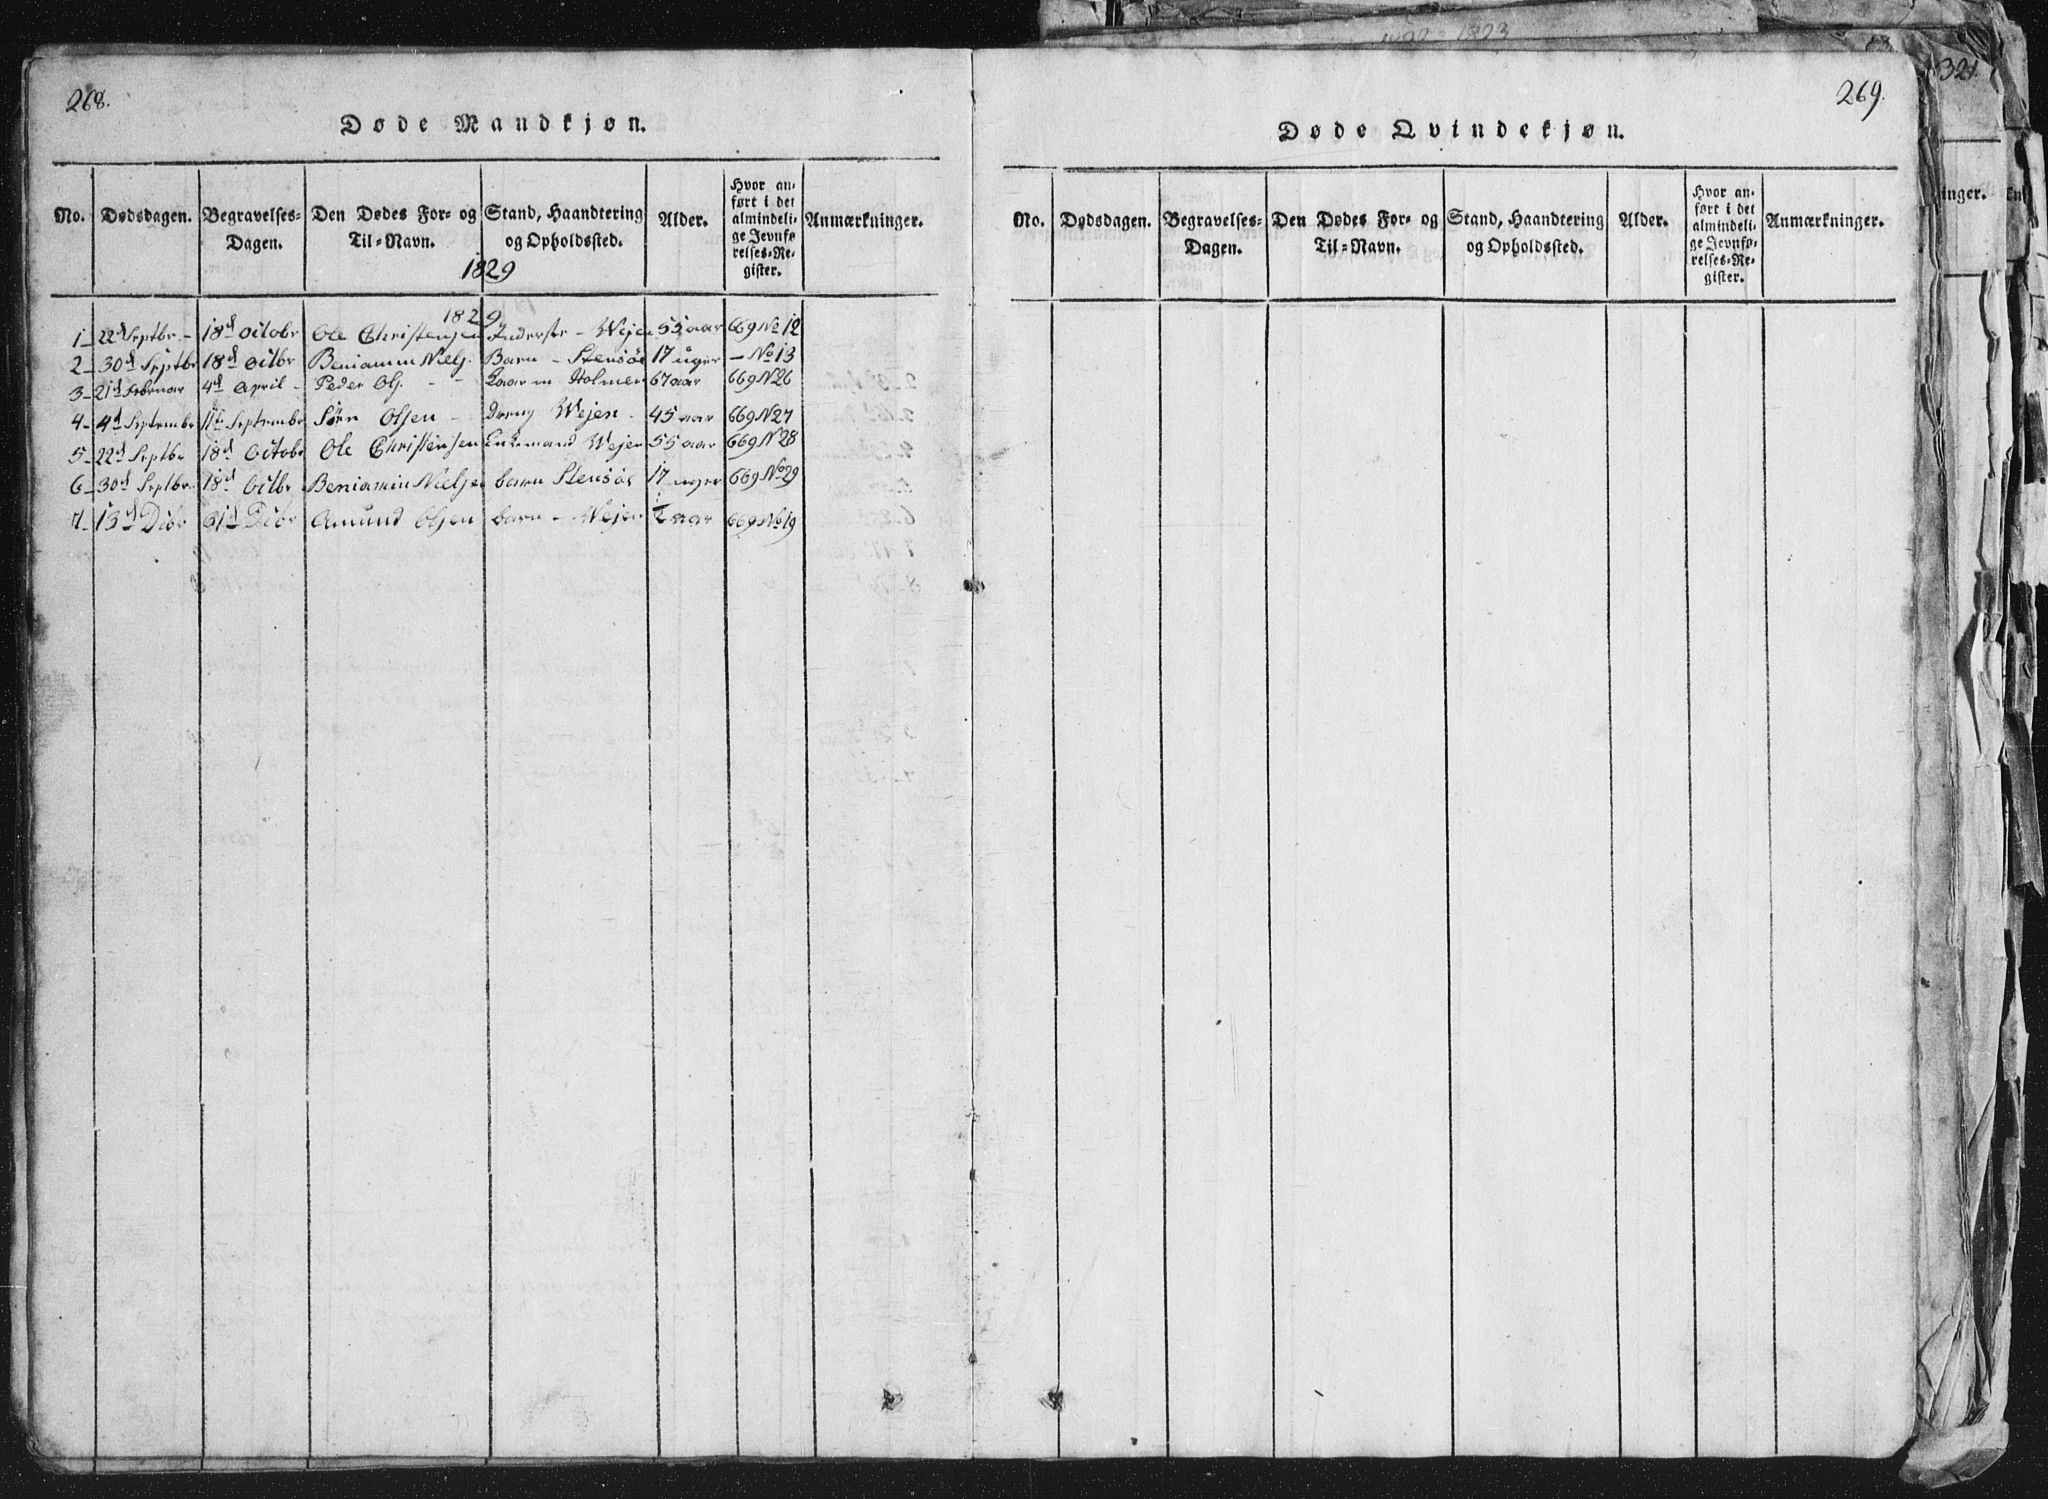 268.
Døde Mandkjøn.
No. Dødsdagen. Begravelses-Dagen. Den Dødes For- og Til-Navn. Stand, Haandtering og Opholdssted. Alder. Hvor anført i det almindelige Jevnførelses-Register. Anmærkninger.
1829
1829
1 - 22d Septbr - 18d Octobr Ole Christensen Inderste - Wejen 55 aar 669 No 12
2 - 30d Septbr 18d Octbr Beniamin Nielj. Barn - Stensøe 17 uger - No 13
3 - 21d Februar 4d April - Peder Olj. - - Holmen 67 aar 669 N 26
4 - 4d Septembr 11te Septembr Sørn Olsen - Dreng Wejen - 45 aar 669 N 27
5 - 22d Septbr 18d Octobr Ole Christensen Enkemand Wejen 55 aar 669 N 28
6 - 30d Septbr 18d Octbr Beniamin Nieljen barn Stensøe 17 uger 669 No 29
7 - 13d Dcbr 31d Dcbr Amund Olsen barn - Wejen 1/2 aar 669 No 19
269.
Døde Qvindekjøn.
No. Dødsdagen. Begravelses-Dagen. Den Dødes For- og Til-Navn. Stand, Haandtering og Opholdssted. Alder. Hvor anført i det almindelige Jevnførelses-Register. Anmærkninger.
1823
321.
inger.